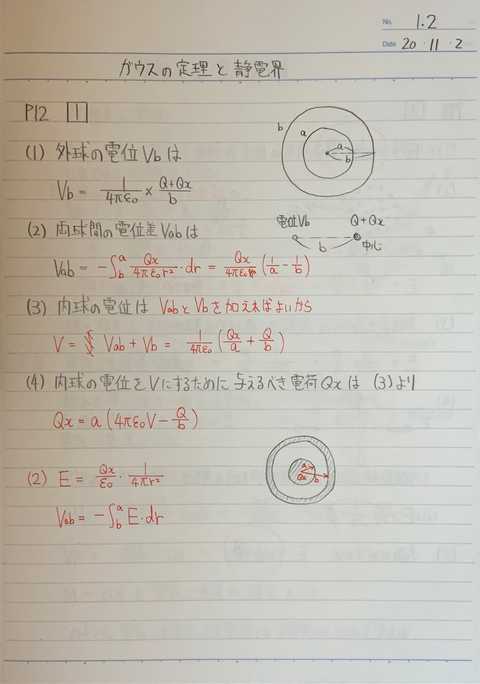 No. 1.2
Date 20・11・2
ガウスの定理と静電界
P12 1
b a a b
(1) 外球の電位 Vb は
Vb = 1/4πε0 × Q+Qx/b
(2) 両球間の電位差 Vab は
電位Vb Q+Qx
b 中心
Vab = -∫_b^a Qx/4πε0r² ・dr = Qx/4πε0 (1/a - 1/b)
(3) 内球の電位は VabとVbを加えればよいから
V = Vab + Vb = 1/4πε0 (Qx/a + Q/b)
(4) 内球の電位をVにするために与えるべき電荷Qxは (3)より
Qx = a(4πε0V - Q/b)
(2) E = Qx/ε0 ・ 1/4πr²
a Qx b
Vab = -∫_b^a E・dr